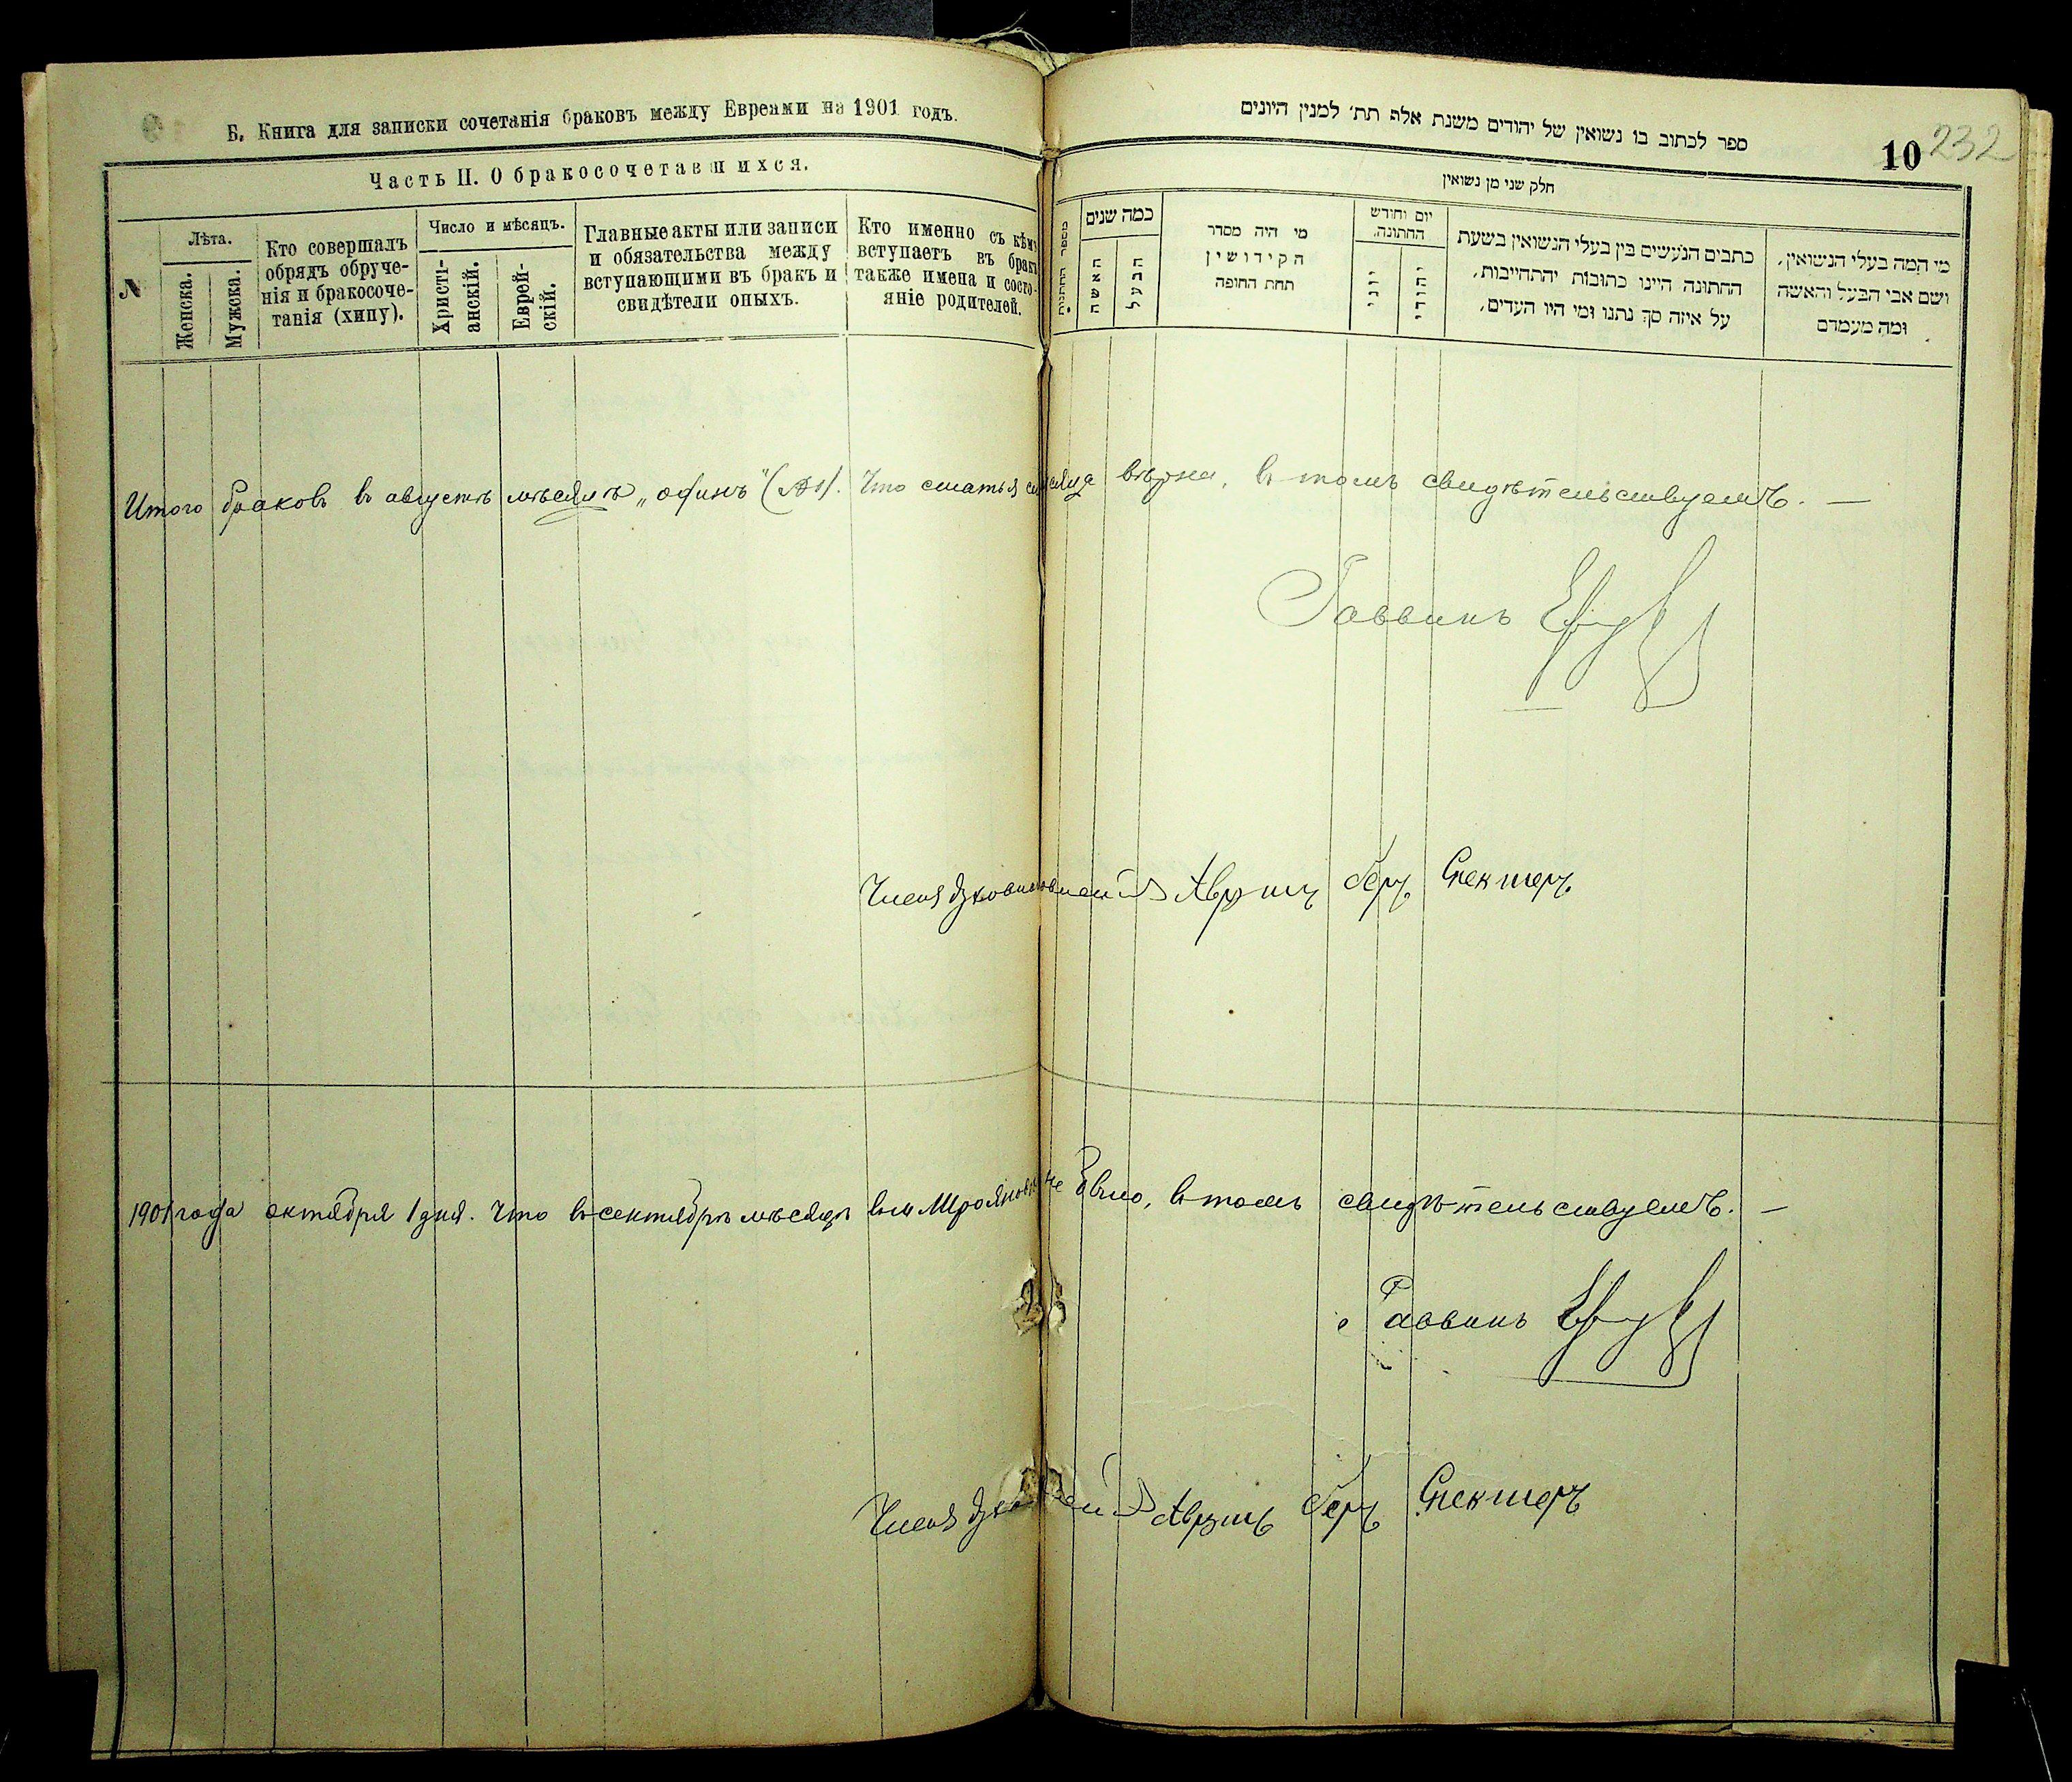 Б. Книга для записки сочетанія браковъ между Евреями на 1901 годъ.
Часть II. О бракосочетавшихся.
№
Лѣта.
Женска.
Мужска.
Кто совершалъ
обрядъ обруче-
нія и бракосоче-
танія (хипу).
Число и мѣсяцъ.
Христі-
анскій.
Еврей-
скій.
Главные акты или записи
и обязательства между
вступающими въ бракъ и
свидѣтели оныхъ.
Кто именно съ кѣмъ
вступаетъ въ бракъ
также имена и состо-
яніе родителей.
ספר לכתוב בו נשואין של יהודים משנת אלף תת׳ למנין היונים
10
232
חלק שני מן נשואין
מספר החתנות
כמה שנים
האשה
הבעל
מי היה מסדר
הקידושין
תחת החופה
יום וחודש
החתונה.
יוני
יהודי
כתבים הנעשים בין בעלי הנשואין בשעת
החתונה היינו כתובות יהתחייבות,
על איזה סך נתנו ומי היו העדים,
מי המה בעלי הנשואין,
ושם אבי הבעל והאשה
ומה מעמדם
Итого браковъ въ августѣ мѣсяцѣ „одинъ" (№1). Что статья сія вѣрна, въ томъ свидѣтельствуемъ. —
Раввинъ
Членъ духовн Аврумъ Беръ Спекторъ
1901 года октября 1 дня. Что въ сентябрѣ мѣсяцѣ въ м Трояновкѣ не было, въ томъ свидѣтельствуемъ. —
Раввинъ
Членъ Аврумъ Беръ Спекторъ